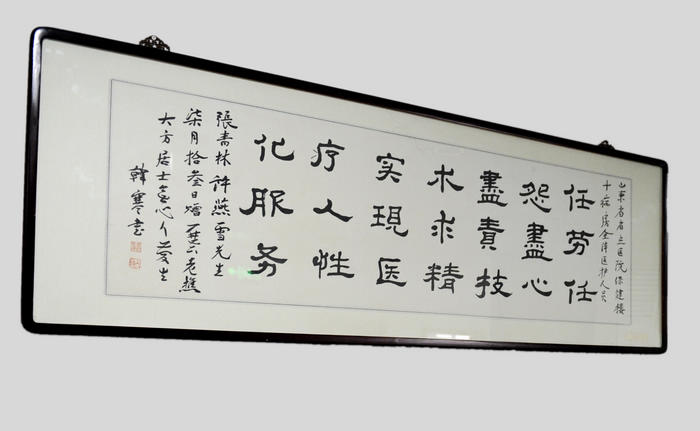 山东省省立医院保健楼
十病房全体医护人员
任劳任
怨盡心
盡責技
术求精
实現医
疗人性
化服务
張青林许燕雪先生
柒月拾叁日
大方居士
韓寒书